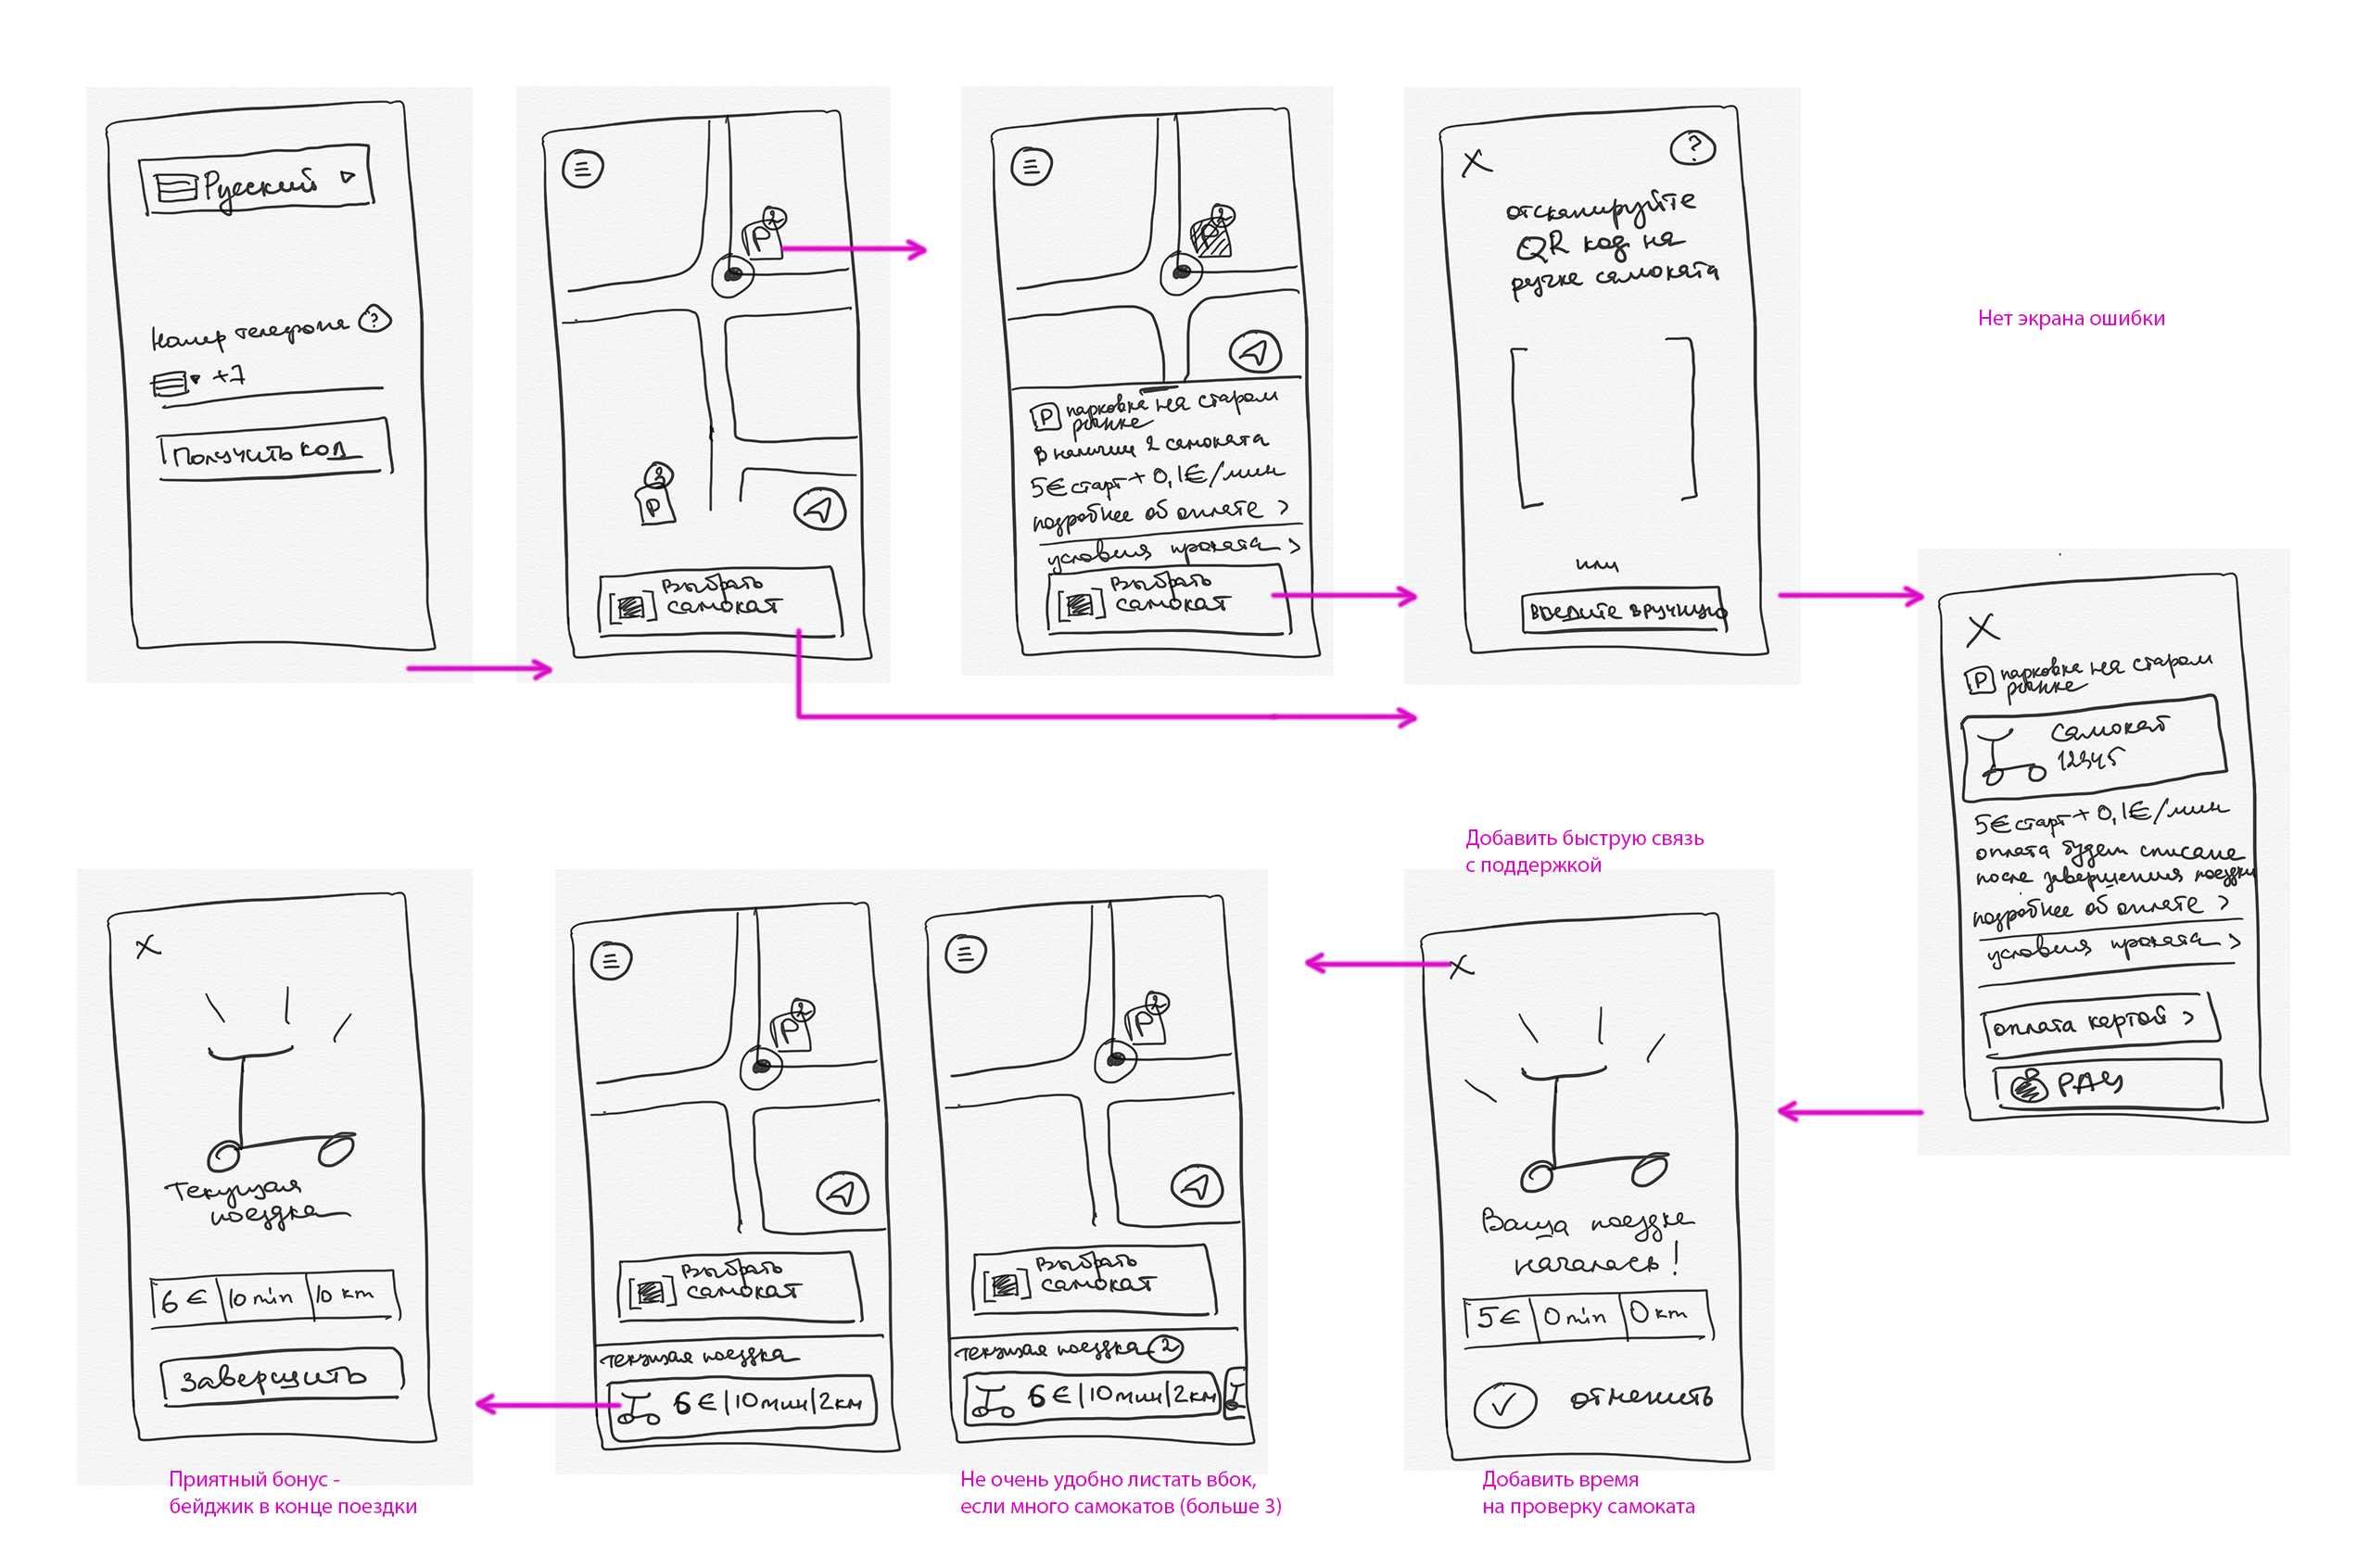 Русский
Номер телефона ?
+7
Получить код
P 2
3
P
Выбрать
самокат
P 2
P парковка на старом
рынке
В наличии 2 самоката
5€ старт + 0,1€/мин
подробнее об оплате >
условия проката >
Выбрать
самокат
X ?
отсканируйте
QR код на
ручке самоката
или
введите вручную
Нет экрана ошибки
X
P парковка на старом
рынке
Самокат
12345
5€ старт + 0,1€/мин
оплата будет списана
после завершения поездки
подробнее об оплате >
условия проката >
оплата картой >
PAY
Добавить быструю связь
с поддержкой
X
Ваша поездка
началась!
5€ 0 min 0 km
отменить
Добавить время
на проверку самоката
P 2
Выбрать
самокат
текущая поездка 2
6€|10мин|2км
Не очень удобно листать вбок,
если много самокатов (больше 3)
P 2
Выбрать
самокат
текущая поездка
6€|10мин|2км
X
Текущая
поездка
6€ 10 min 10 km
завершить
Приятный бонус -
бейджик в конце поездки